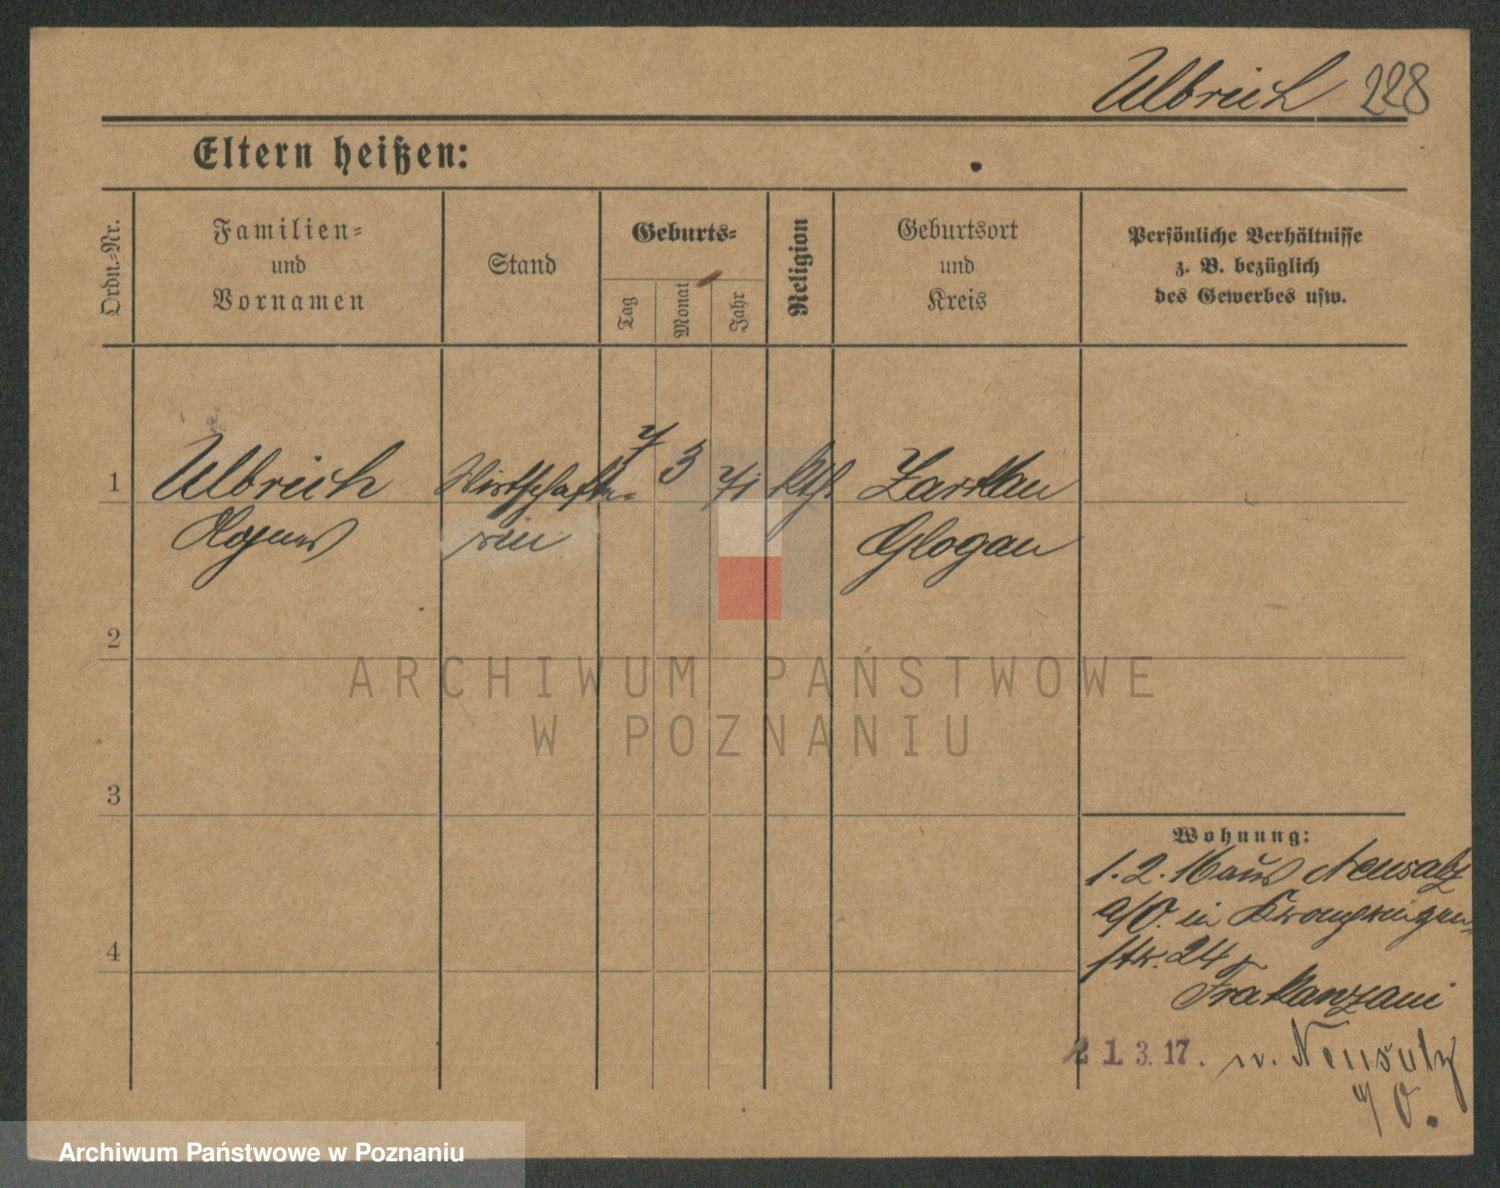 Ulbrich 228
Eltern heißen:
Ordn.-Nr.
Familien-
und
Vornamen
Stand
Geburts-
Tag
Monat
Jahr
Religion
Geburtsort
und
Kreis
Persönliche Verhältnisse
z. B. bezüglich
des Gewerbes usw.
1 Ulbrich Wirtschafte- 7 3 71 kth Zarkau
Agnes rin Glogau
2
3
4
Wohnung:
1. 2. 16 aus Neusalz
a/O. in Kronprinzen
str. 24
21. 3. 17. n. Neusalz
a/O.
ARCHIWUM PAŃSTWOWE
W POZNANIU
Archiwum Państwowe w Poznaniu